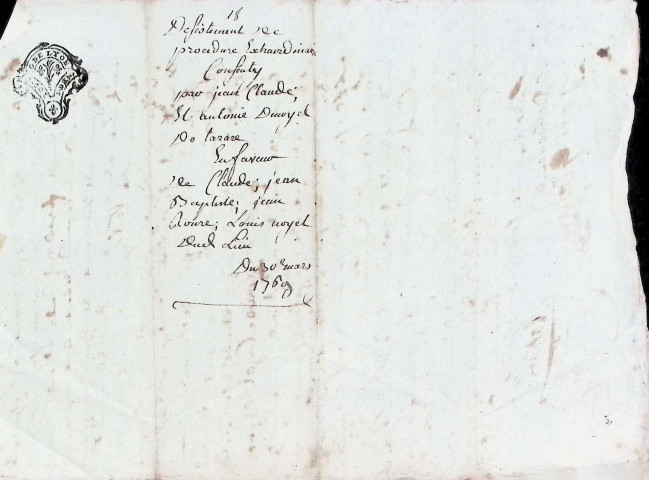 18
Desistement de
procedure Extraordinaire
Consenty
par jean Claude,
et antoine Dnoyel
de tarare
En faveur
de Claude; jean
Baptiste; jean
; Louis noyel
Dud Lieu
Du 30e mars
1769
DE LYON
2